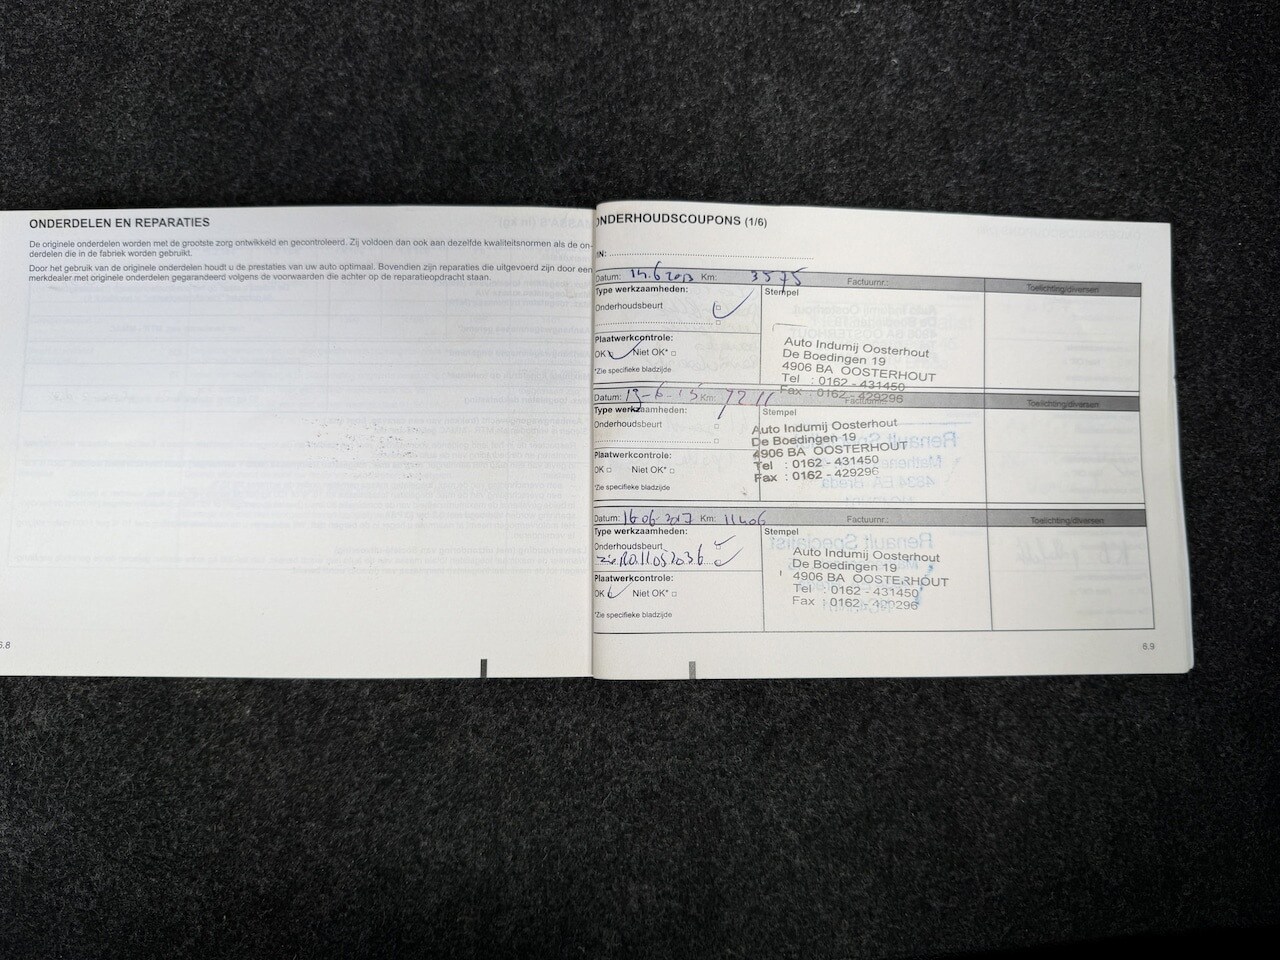 ONDERDELEN EN REPARATIES
De originele onderdelen worden met de grootste zorg ontwikkeld en gecontroleerd. Zij voldoen dan ook aan dezelfde kwaliteitsnormen als de on-
derdelen die in de fabriek worden gebruikt.
Door het gebruik van de originele onderdelen houdt u de prestaties van uw auto optimaal. Bovendien zijn reparaties die uitgevoerd zijn door een
merkdealer met originele onderdelen gegarandeerd volgens de voorwaarden die achter op de reparatieopdracht staan.
6.8
ONDERHOUDSCOUPONS (1/6)
IN:
Datum: 14.6 2013 Km: 3575 Factuurnr.: Toelichting/diversen
Type werkzaamheden: Stempel
Onderhoudsbeurt
Plaatwerkcontrole:
OK Niet OK*
*Zie specifieke bladzijde
Auto Indumij Oosterhout
De Boedingen 19
4906 BA OOSTERHOUT
Tel : 0162 - 431450
Fax : 0162 - 429296
Datum: 19-6-15 Km: 7211 Factuurnr.: Toelichting/diversen
Type werkzaamheden: Stempel
Onderhoudsbeurt
Plaatwerkcontrole:
OK Niet OK*
*Zie specifieke bladzijde
Auto Indumij Oosterhout
De Boedingen 19
4906 BA OOSTERHOUT
Tel : 0162 - 431450
Fax : 0162 - 429296
Datum: 16-06-2017 Km: 11406 Factuurnr.: Toelichting/diversen
Type werkzaamheden: Stempel
Onderhoudsbeurt
Plaatwerkcontrole:
OK Niet OK*
*Zie specifieke bladzijde
Auto Indumij Oosterhout
De Boedingen 19
4906 BA OOSTERHOUT
Tel : 0162 - 431450
Fax : 0162 - 429296
6.9